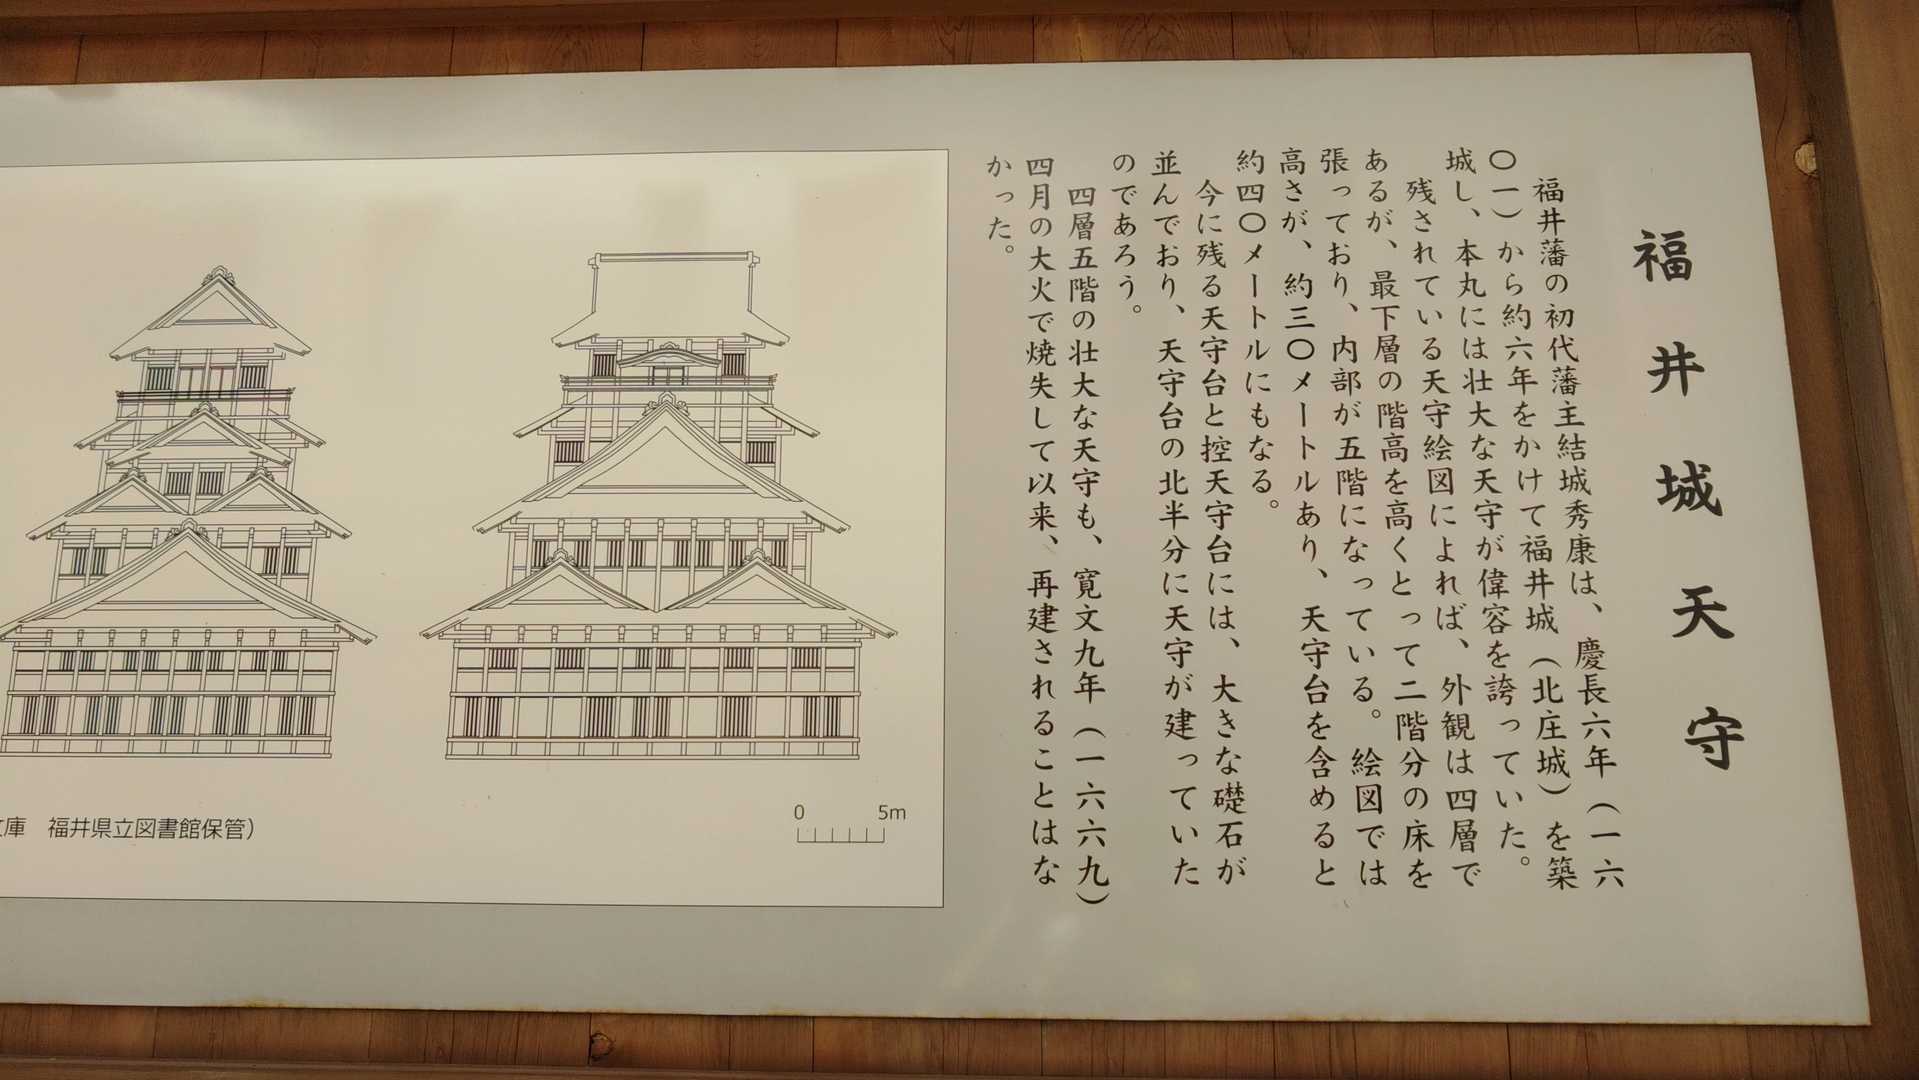 福井城天守
福井藩の初代藩主結城秀康は、慶長六年（一六
〇一）から約六年をかけて福井城（北庄城）を築
城し、本丸には壮大な天守が偉容を誇っていた。
残されている天守絵図によれば、外観は四層で
あるが、最下層の階高を高くとって二階分の床を
張っており、内部が五階になっている。絵図では
高さが、約三〇メートルあり、天守台を含めると
約四〇メートルにもなる。
今に残る天守台と控天守台には、大きな礎石が
並んでおり、天守台の北半分に天守が建っていた
のであろう。
四層五階の壮大な天守も、寛文九年（一六六九）
四月の大火で焼失して以来、再建されることはな
かった。
0 5m
庫 福井県立図書館保管）